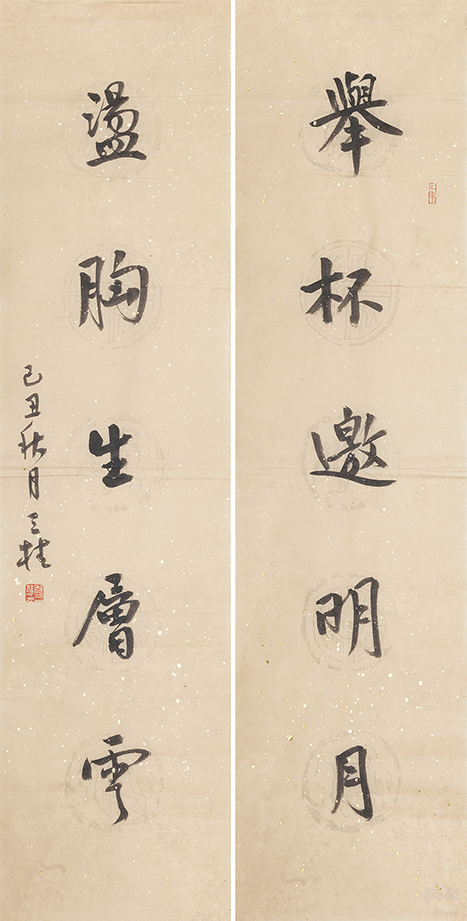 舉杯邀明月
盪胸生層雲
己丑秋月三桂